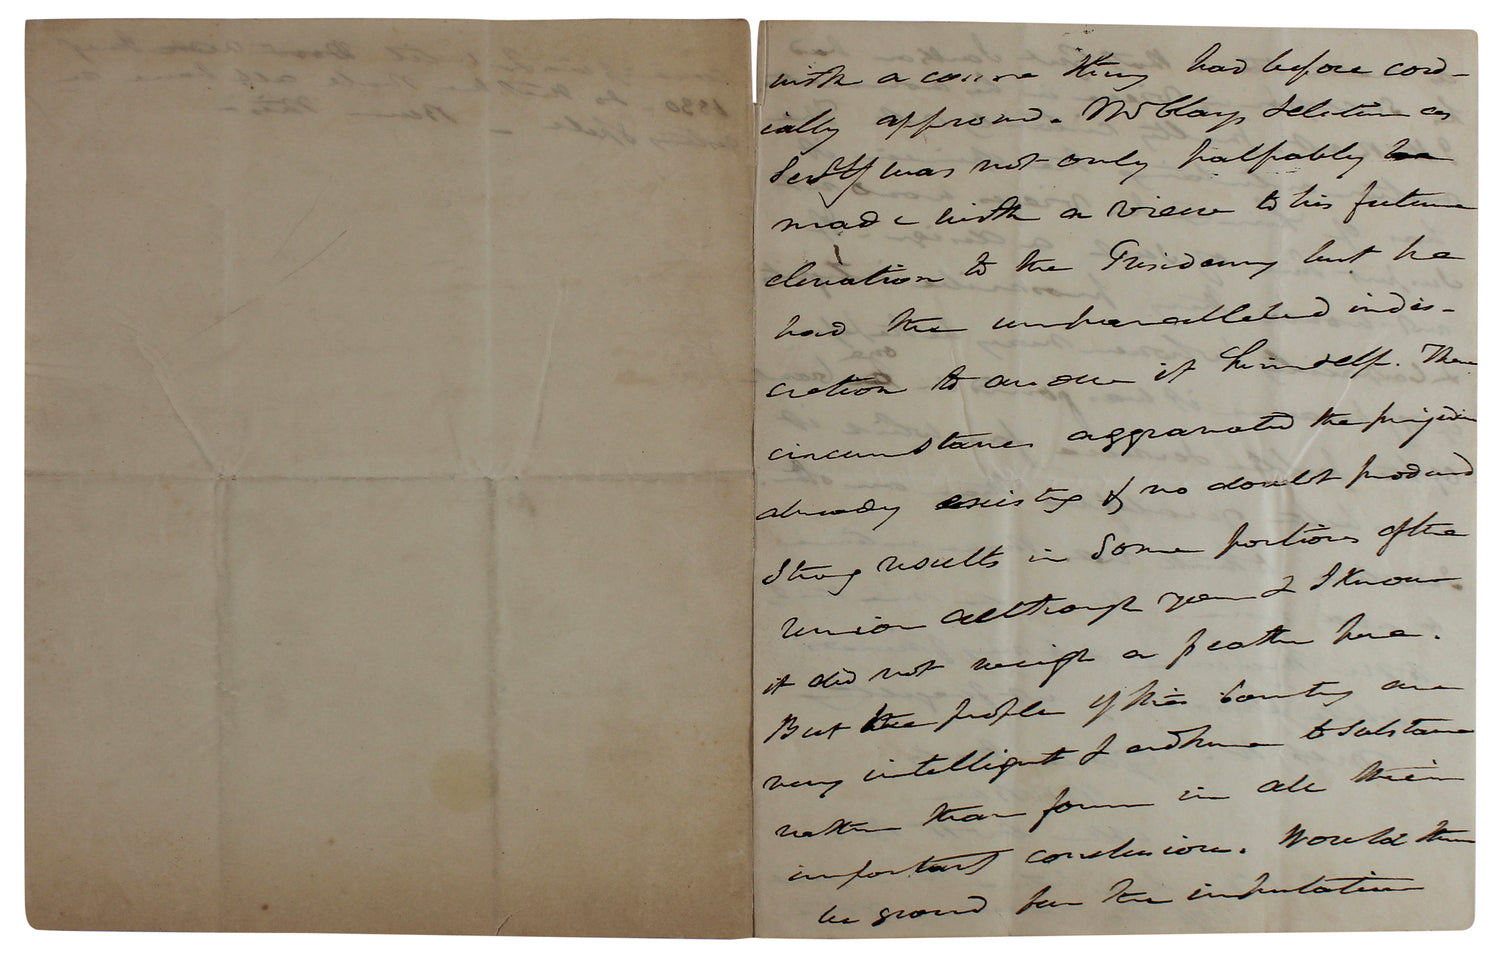 with a course they had before cord-
ially approved. Mr Clays Selection as
Secty was not only palpably
made with a view to his future
elevation to the Presidency but he
had the unparallelled indis-
cretion to avow it himself. These
circumstances aggravated the prejudice
already existing & no doubt produced
Strong results in Some portions of the
Union although you & I know
it did not weigh a feather here.
But the people of this Country are
very intelligent & adhere to substance
rather than form in all their
important conclusions. Would there
be ground for the imputation